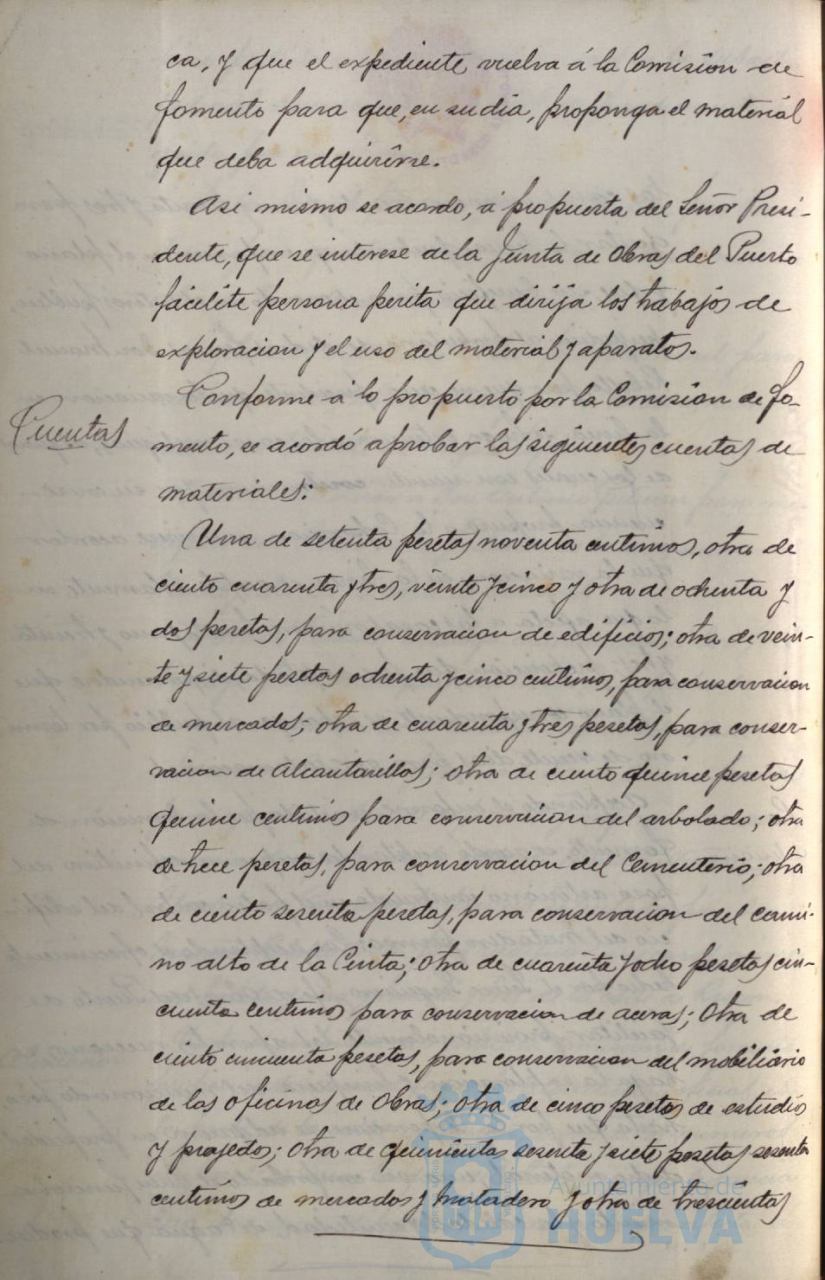 ca, y que el expediente vuelva á la Comision de
fomento para que, en su dia, proponga el material
que deba adquirirse.
Asi mismo se acordo, á propuesta del Señor Presi-
dente, que se interese de la Junta de Obras del Puerto
facilite persona perita que dirija los trabajos de
exploracion y el uso del material y aparatos.
Cuentas
Conforme á lo propuesto por la Comision de fo-
mento, se acordó aprobar las siguientes cuentas de
materiales:
Una de setenta pesetas noventa centimos, otra de
ciento cuarenta y tres, veinte y cinco y otra de ochenta y
dos pesetas, para conservacion de edificios; otra de vein-
te y siete pesetas ochenta y cinco centimos, para conservacion
de mercados; otra de cuarenta y tres pesetas, para conser-
vacion de Alcantarillas; otra de ciento quince pesetas
quince centimos para conservacion del arbolado; otra
de trece pesetas, para conservacion del Cementerio; otra
de ciento sesenta pesetas, para conservacion del cami-
no alto de la Cinta; otra de cuarenta y ocho pesetas cin-
cuenta centimos para conservacion de aceras; otra de
ciento cincuenta pesetas, para conservacion del mobiliario
de las oficinas de Obras; otra de cinco pesetas de estudios
y proyectos; otra de quinientas sesenta y siete pesetas sesenta
centimos de mercados y matadero y otra de trescientas
Ayuntamiento de
HUELVA